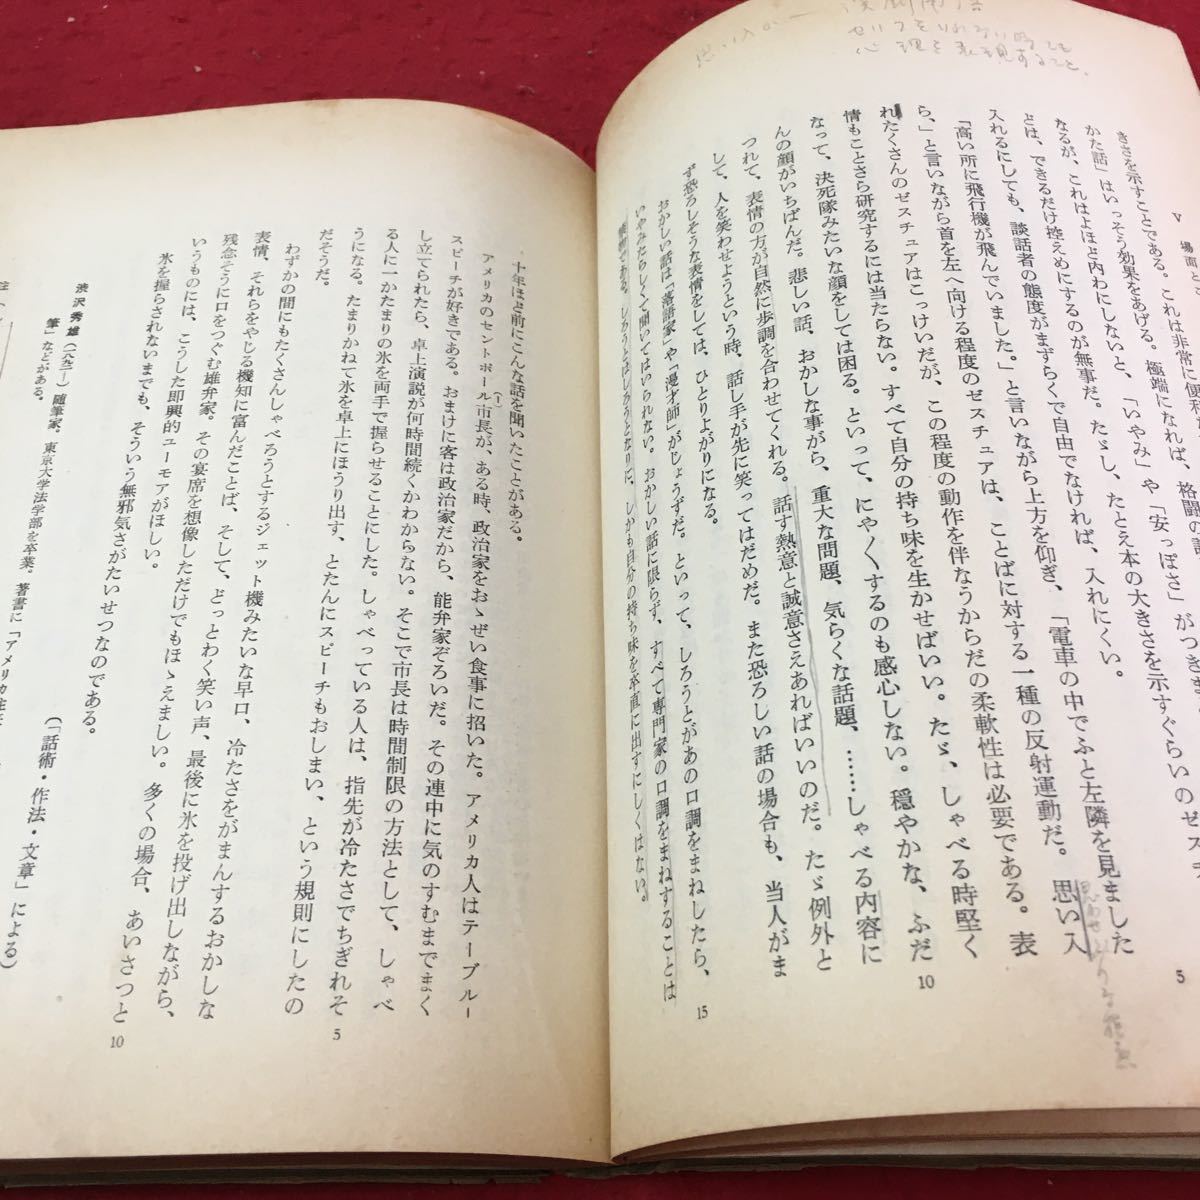 思い入れ― 演劇用語
せりふをいれない時でも
心理を表現すること、
V 場面とこ
きさを示すことである。これは非常に便利だ
かた話」はいっそう効果をあげる。極端になれば、格闘の話
なるが、これはよほと内わにしないと、「いやみ」や「安っぽさ」がつきま
とは、できるだけ控えめにするのが無事だ。たゞし、たとえ本の大きさを示すぐらいのゼスチ
入れるにしても、談話者の態度がまずらくで自由でなければ、入れにくい。
「高い所に飛行機が飛んでいました。」と言いながら上方を仰ぎ、「電車の中でふと左隣を見ました
ら、」と言いながら首を左へ向ける程度のゼスチュアは、ことばに対する一種の反射運動だ。思い入
れたくさんのゼスチュアはこっけいだが、この程度の動作を伴なうからだの柔軟性は必要である。表
情もことさら研究するには当たらない。すべて自分の持ち味を生かせばいい。たゞ、しゃべる時堅く
なって、決死隊みたいな顔をしては困る。といって、にや〱するのも感心しない。穏やかな、ふだ
んの顔がいちばんだ。悲しい話、おかしな事がら、重大な問題、気らくな話題、……しゃべる内容に
つれて、表情の方が自然に歩調を合わせてくれる。話す熱意と誠意さえあればいいのだ。たゞ例外と
して、人を笑わせようという時、話し手が先に笑ってはだめだ。また恐ろしい話の場合も、当人がま
ず恐ろしそうな表情をしては、ひとりよがりになる。
おかしい話は「落語家」や「漫才師」がじょうずだ。といって、しろうとがあの口調をまねしたら、
いやみたらしくて聞いてはいられない。おかしい話に限らず、すべて専門家の口調をまねすることは
禁物である。しろうとはしろうとなりに、しかも自分の持ち味を卒直に出すにしくはない。
5
10
15
十年ほど前にこんな話を聞いたことがある。
アメリカのセントポール市長が、ある時、政治家をおゝぜい食事に招いた。アメリカ人はテーブル－
(1)
スピーチが好きである。おまけに客は政治家だから、能弁家ぞろいだ。その連中に気のすむまでまく
し立てられたら、卓上演説が何時間続くかわからない。そこで市長は時間制限の方法として、しゃべ
る人に一かたまりの氷を両手で握らせることにした。しゃべっている人は、指先が冷たさでちぎれそ
うになる。たまりかねて氷を卓上にほうり出す、とたんにスピーチもおしまい、という規則にしたの
だそうだ。
わずかの間にもたくさんしゃべろうとするジェット機みたいな早口、冷たさをがまんするおかしな
表情、それらをやじる機知に富んだことば、そして、どっとわく笑い声、最後に氷を投げ出しながら、
残念そうに口をつぐむ雄弁家。その宴席を想像しただけでもほゝえましい。多くの場合、あいさつと
いうものには、こうした即興的ユーモアがほしい。
氷を握らされないまでも、そういう無邪気さがたいせつなのである。
(「話術・作法・文章」による)
5
10
渋沢秀雄(一八九二―) 随筆家。東京大学法学部を卒業。著書に「アメリカ
筆」などがある。
注